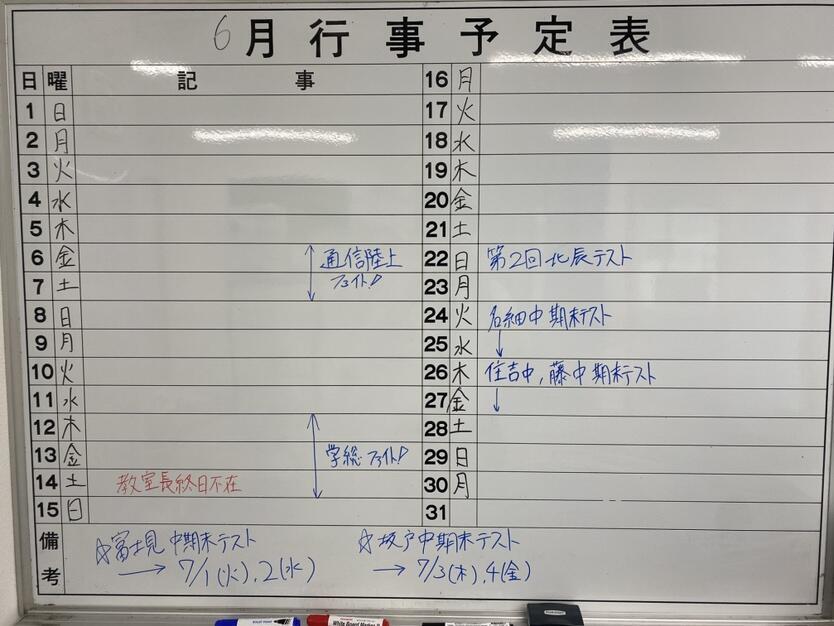 6月行事予定表
日 曜 記事
1 日
2 月
3 火
4 水
5 木
6 金 通信陸上
7 土 ファイト!
8 日
9 月
10 火
11 水
12 木
13 金 学総 ファイト!
14 土 教室長終日不在
15 日
16 月
17 火
18 水
19 木
20 金
21 土
22 日 第2回北辰テスト
23 月
24 火 名細中 期末テスト
25 水 ↓
26 木 住吉中, 藤中 期末テスト
27 金 ↓
28 土
29 日
30 月
31
備考
☆富士見中期末テスト
→ 7/1(火), 2(水)
☆坂戸中期末テスト
→ 7/3(木), 4(金)